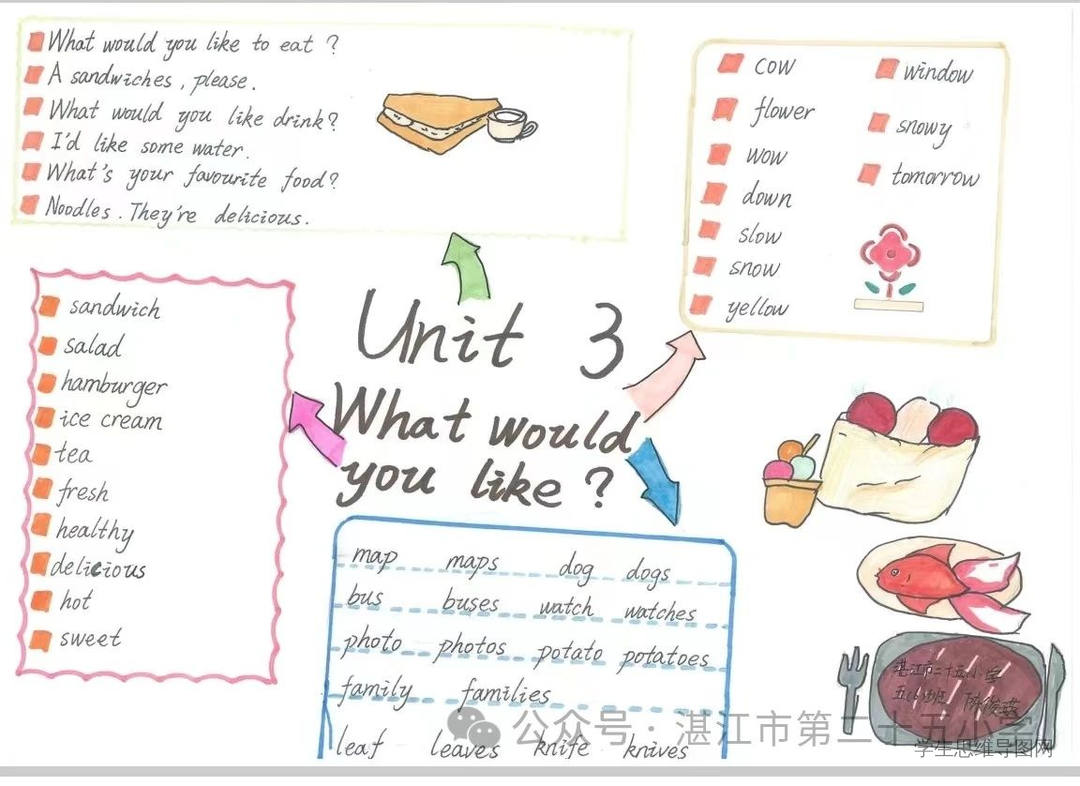 What would you like to eat ?
A sandwiches , please .
What would you like drink?
I'd like some water .
What's your favourite food?
Noodles . They're delicious .
cow
flower
wow
down
slow
snow
yellow
window
snowy
tomorrow
sandwich
salad
hamburger
ice cream
tea
fresh
healthy
delicious
hot
sweet
Unit 3
What would
you like ?
map maps dog dogs
bus buses watch watches
photo photos potato potatoes
family families
leaf leaves knife knives
湛江市二十五小学
公众号：湛江市第二十五小学
学生思维导图网